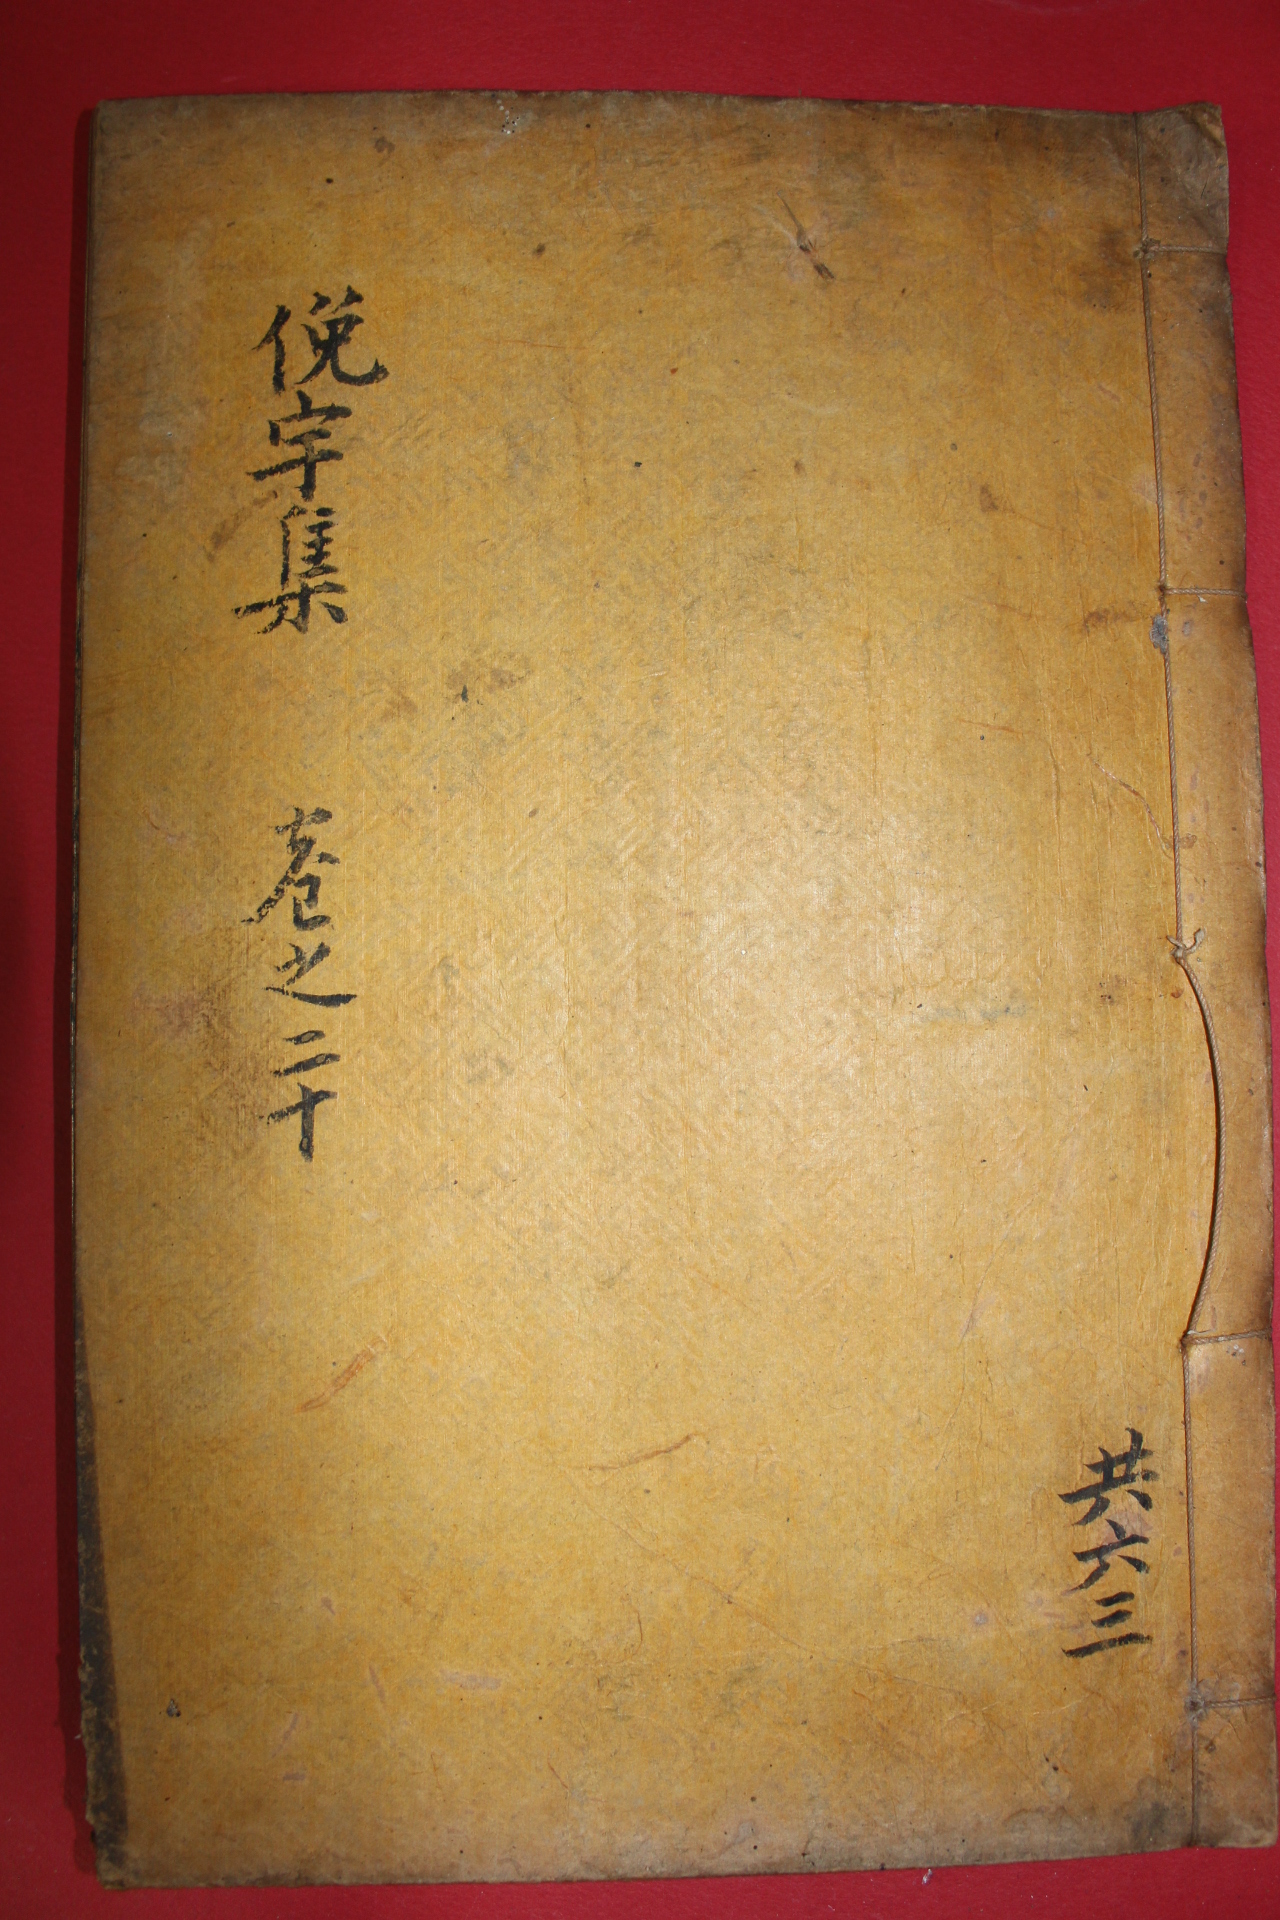 共六三
俛宇集 卷之二十